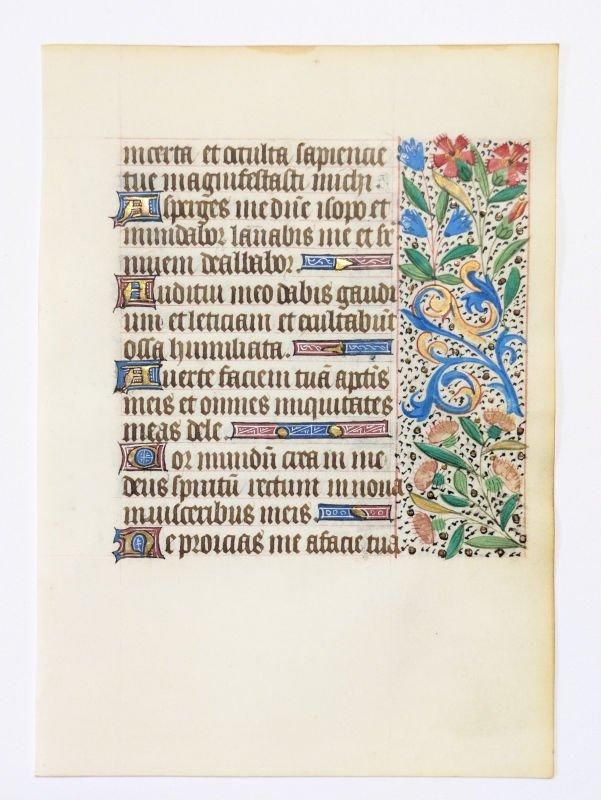 incerta et occulta sapiencie
tue magnifestasti michi.
Asperges me dñe isopo et
mundabor lauabis me et su
niuem dealbabor.
Auditui meo dabis gaudi
um et leticiam et exultabũt
ossa humiliata.
Auerte faciem tuã a pctis
meis et omnes iniquitates
meas dele.
Cor mundũ crea in me
deus spiritũ rectum innoua
in uisceribus meis.
Ne proicias me a facie tua.